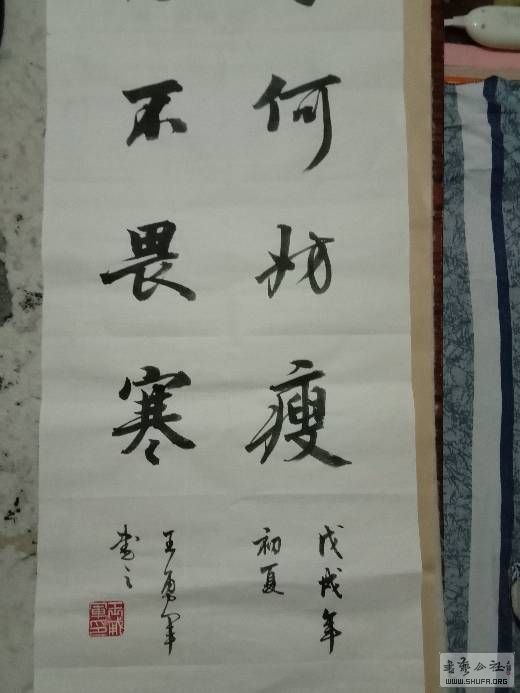 何妨瘦
不畏寒
戊戌年
初夏
王勇军
書之
書藝公社
WWW.SHUFA.ORG